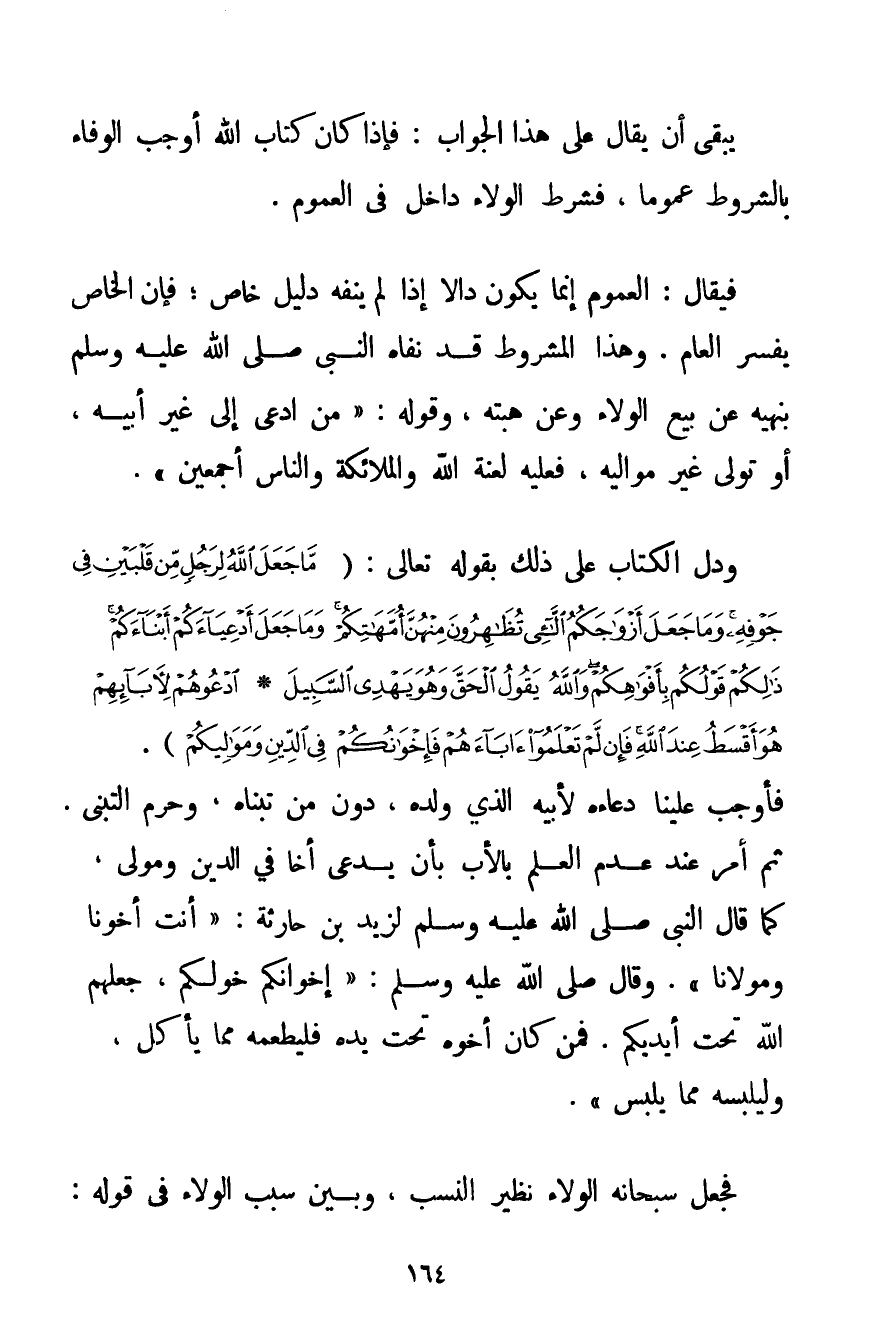 يبقى أن يقال على هذا الجواب : فإذا كان كتاب الله أوجب الوفاء
بالشروط عموما ، فشرط الولاء داخل فى العموم .
فيقال : العموم إنما يكون دالا إذا لم ينفه دليل خاص ؛ فإن الخاص
يفسر العام . وهذا المشروط قد نفاه النبى صلى الله عليه وسلم
بنهيه عن بيع الولاء وعن هبته ، وقوله : « من ادعى إلى غير أبيه ،
أو تولى غير مواليه ، فعليه لعنة الله والملائكة والناس أجمعين » .
ودل الكتاب على ذلك بقوله تعالى : ( مَّا جَعَلَ ٱللَّهُ لِرَجُلٍ مِّن قَلْبَيْنِ فِى
جَوْفِهِۦ ۚ وَمَا جَعَلَ أَزْوَٰجَكُمُ ٱلَّٰٓـِٔى تُظَٰهِرُونَ مِنْهُنَّ أُمَّهَٰتِكُمْ ۚ وَمَا جَعَلَ أَدْعِيَآءَكُمْ أَبْنَآءَكُمْ ۚ
ذَٰلِكُمْ قَوْلُكُم بِأَفْوَٰهِكُمْ ۖ وَٱللَّهُ يَقُولُ ٱلْحَقَّ وَهُوَ يَهْدِى ٱلسَّبِيلَ * ٱدْعُوهُمْ لِأَبَآئِهِمْ
هُوَ أَقْسَطُ عِندَ ٱللَّهِ ۚ فَإِن لَّمْ تَعْلَمُوٓا۟ ءَابَآءَهُمْ فَإِخْوَٰنُكُمْ فِى ٱلدِّينِ وَمَوَٰلِيكُمْ ) .
فأوجب علينا دعاءه لأبيه الذي ولده ، دون من تبناه ، وحرم التبنى .
ثم أمر عند عدم العلم بالأب بأن يدعى أخا في الدين ومولى ،
كما قال النبى صلى الله عليه وسلم لزيد بن حارثة : « أنت أخونا
ومولانا » . وقال صلى الله عليه وسلم : « إخوانكم خولكم ، جعلهم
الله تحت أيديكم . فمن كان أخوه تحت يده فليطعمه مما يأكل ،
وليلبسه مما يلبس » .
فجعل سبحانه الولاء نظير النسب ، وبين سبب الولاء فى قوله :
١٦٤